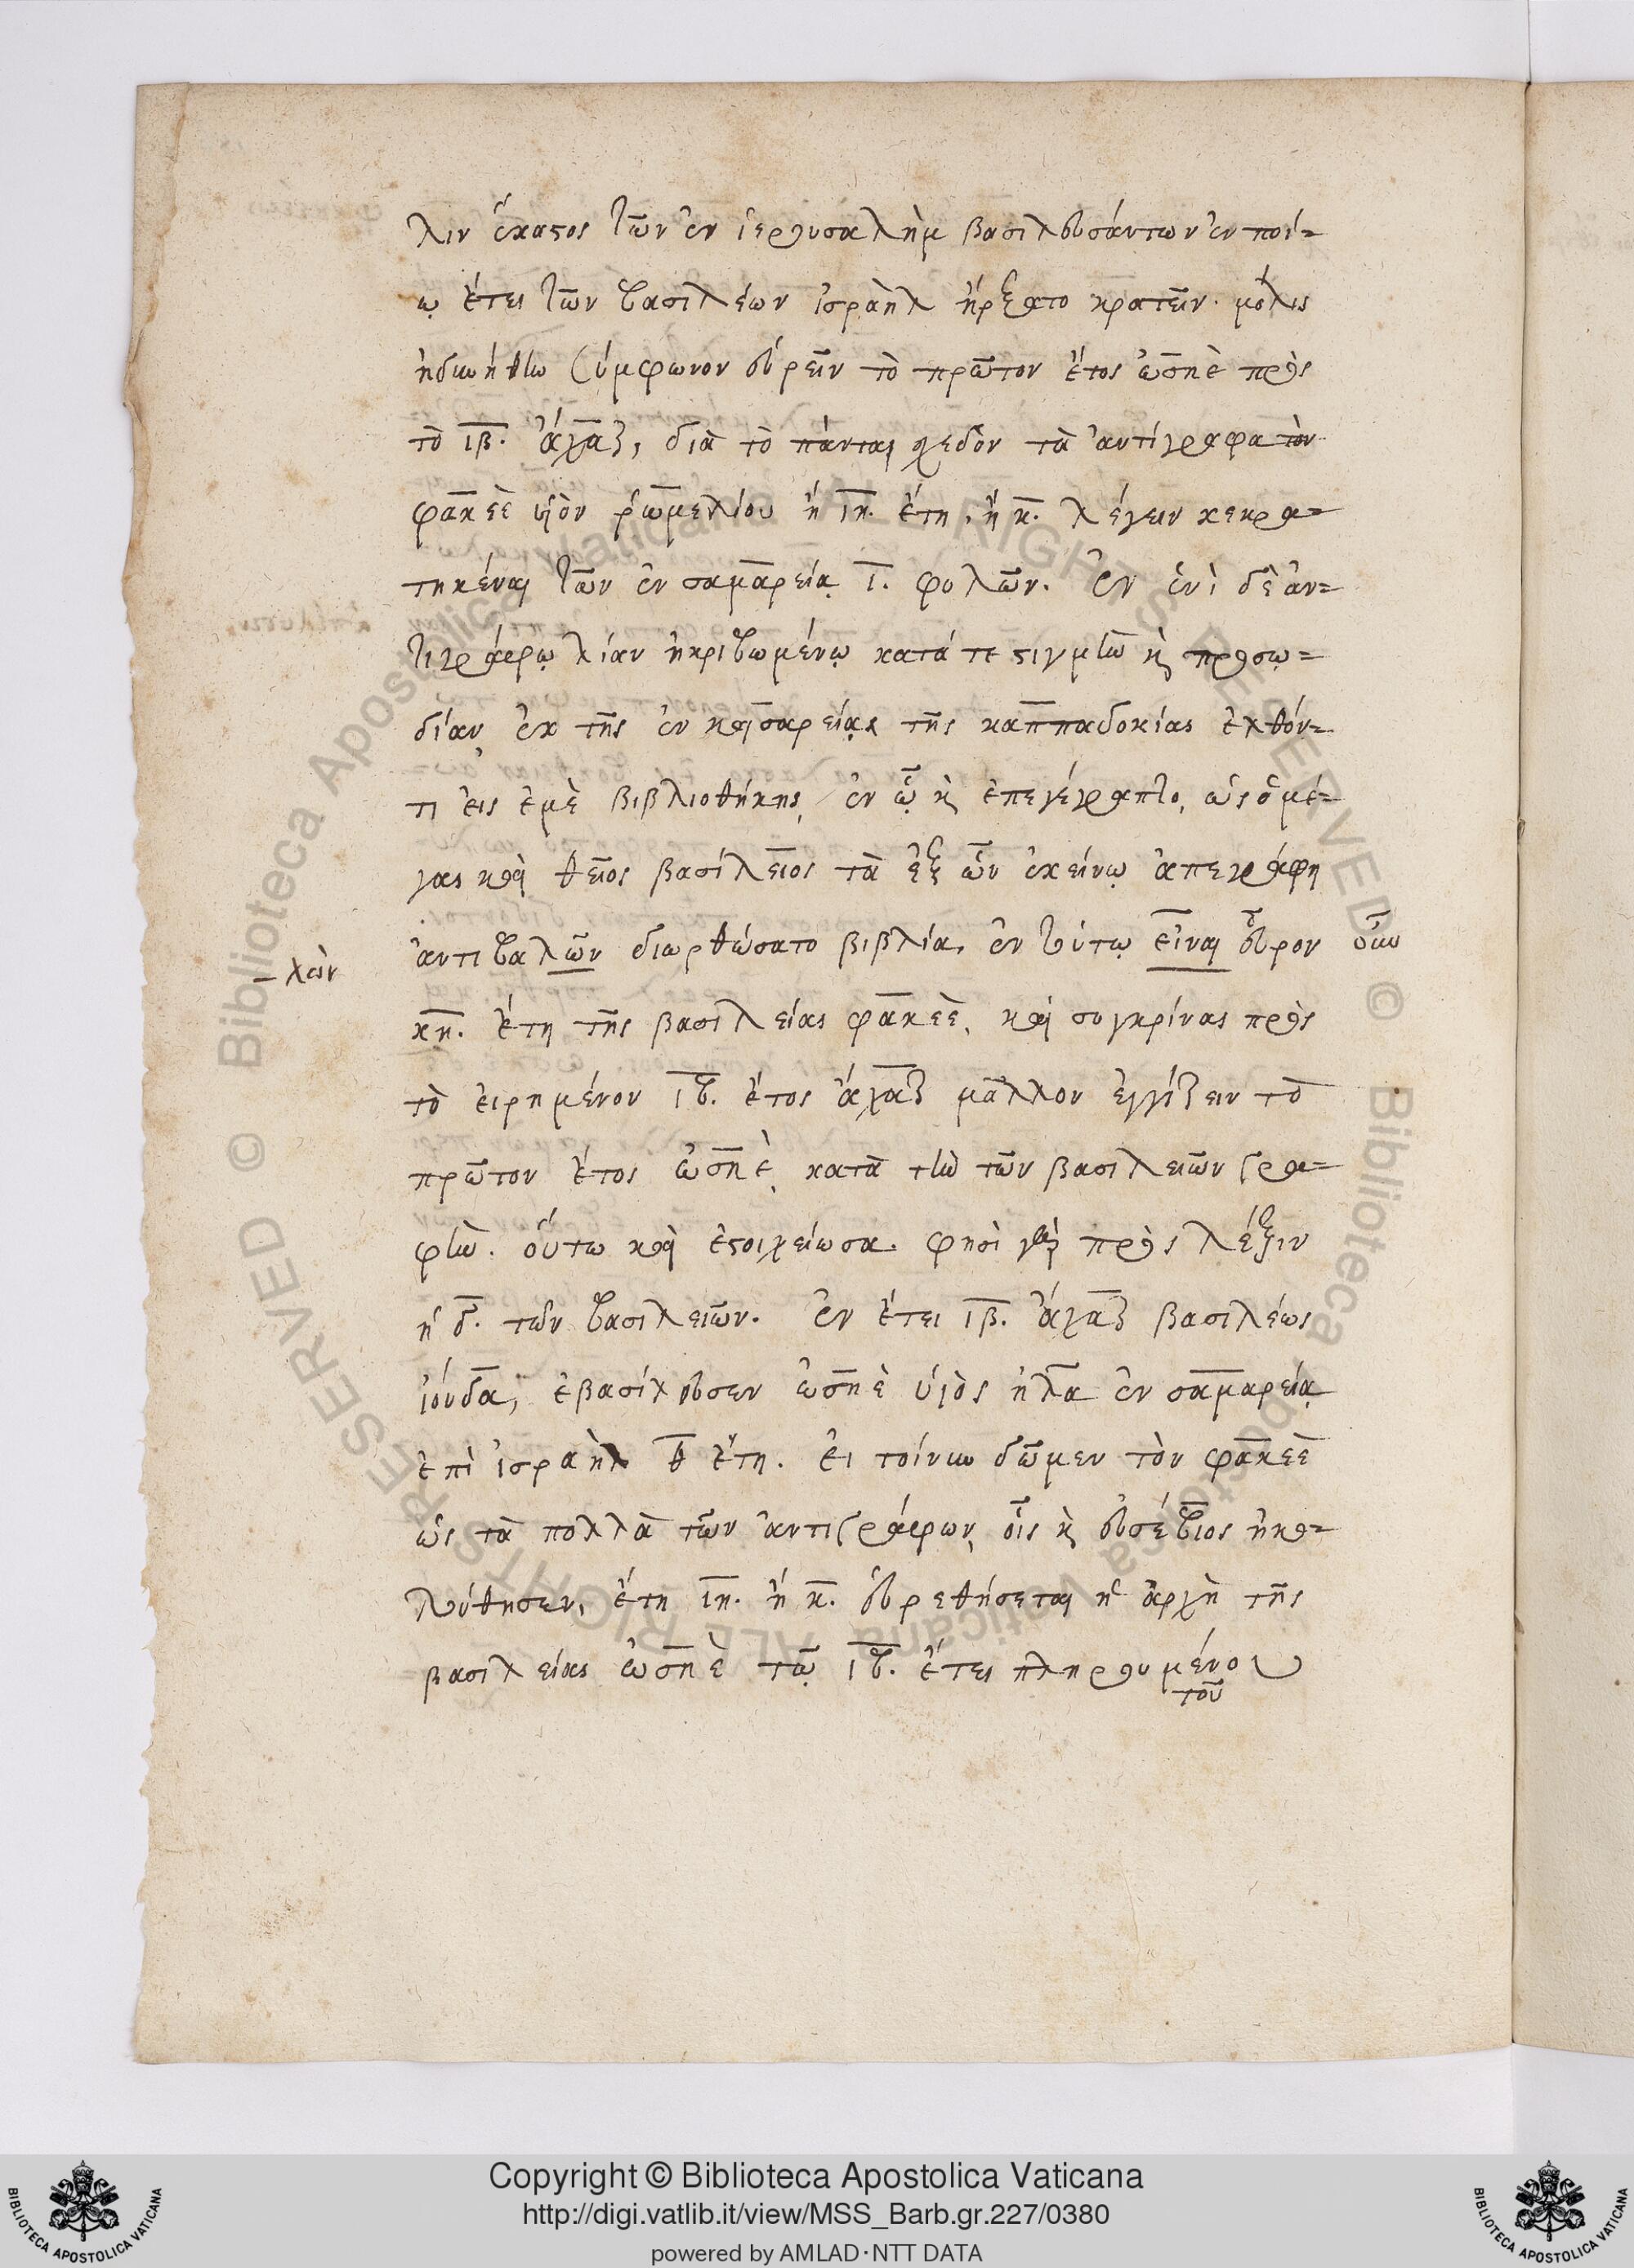 λιν ἕκαστος τῶν ἐν ἱερουσαλὴμ βασιλευσάντων ἐν ποί=
ῳ ἔτει τῶν βασιλέων ἰσραὴλ ἤρξατο κρατεῖν. μόλις
ἠδυνήθην σύμφωνον εὑρεῖν τὸ πρῶτον ἔτος ὠσηὲ πρὸς
τὸ ιβ. ἀχαζ, διὰ τὸ πάντα σχεδὸν τὰ ἀντίγραφα τὸν
φακεὲ υἱὸν ῥωμελίου ἢ ιη. ἔτη, ἢ κ. λέγειν κεκρα=
τηκέναι τῶν ἐν σαμαρείᾳ ι. φυλῶν. ἐν ἑνὶ δὲ ἀν=
τιγράφῳ λίαν ἠκριβωμένῳ κατά τε στιγμὴν κ̀ προσῳ=
δίαν ἐκ τῆς ἐν καισαρείᾳ τῆς καππαδοκίας ἐλθόν=
τι εἰς ἐμὲ βιβλιοθήκης, ἐν ᾧ κ̀ ἐπεγέγραπτο, ὡς ὁ μέ=
γας καὶ θεῖος βασίλειος τὰ ἐξ ὧν ἐκείνῳ ἀπεγράφη
ἀντιβαλῶν διωρθώσατο βιβλία, ἐν τούτῳ εἶναι εὗρον οὖν
-λὼν
κη. ἔτη τῆς βασιλείας φακεὲ, καὶ συγκρίνας πρὸς
τὸ εἰρημένον ιβ. ἔτος ἀχαζ μᾶλλον ἐγγίζειν τὸ
πρῶτον ἔτος ὠσηὲ, κατὰ τὴν τῶν βασιλειῶν γρα=
φὴν. οὕτω καὶ ἐστοιχείωσα. φησὶ γὰρ πρὸς λέξιν
ἡ δ. τῶν βασιλειῶν. ἐν ἔτει ιβ. ἀχαζ βασιλέως
ἰούδα, ἐβασίλευσεν ὠσηὲ υἱὸς ἠλα ἐν σαμαρείᾳ
ἐπὶ ἰσραὴλ θ ἔτη. εἰ τοίνυν δῶμεν τὸν φακεὲ
ὡς τὰ πολλὰ τῶν ἀντιγράφων, οἷς κ̀ εὐσέβιος ἠκο=
λούθησεν, ἔτη ιη. ἢ κ. εὑρεθήσεται ἡ ἀρχὴ τῆς
βασιλείας ὠσηὲ τῷ ιβ. ἔτει πληρουμένου
τοῦ
Copyright © Biblioteca Apostolica Vaticana
http://digi.vatlib.it/view/MSS_Barb.gr.227/0380
powered by AMLAD·NTT DATA